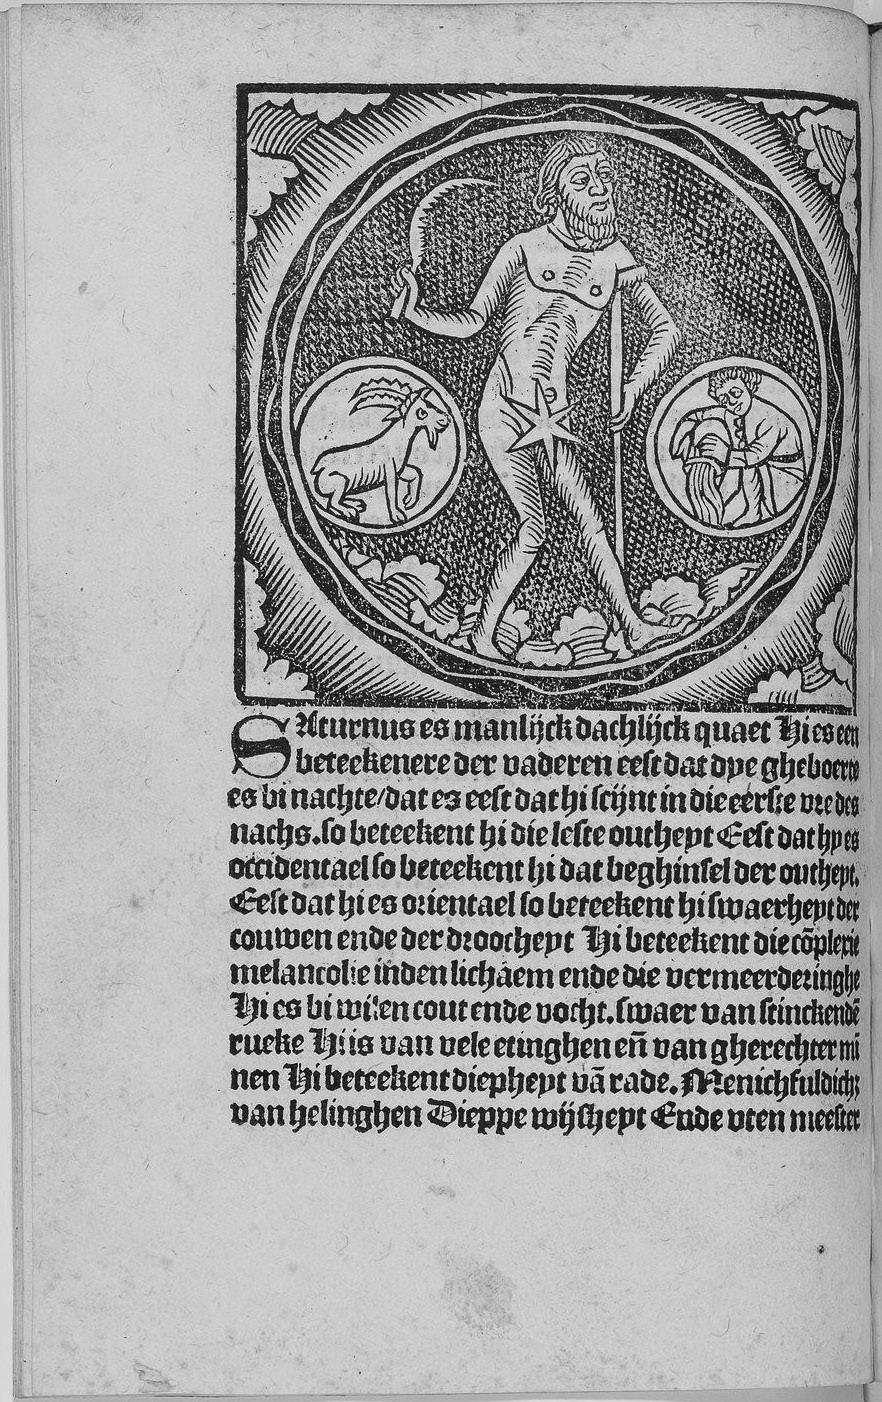 SAturnus es manlijck dachlijck quaet Hi es een
beteekenere der vaderen eest dat dye gheboerte
es bi nachte/dat es eest dat hi scijnt in die eerste vre des
nachs. so beteekent hi die leste outheyt Eest dat hy es
occidentael so beteekent hi dat beghinsel der outheyt.
Eest dat hi es orientael so beteekent hi swaerheyt der
couwen ende der droocheyt Hi beteekent die cōplexie
melancolie inden lichaem ende die vermeerderinghe
Hi es bi wilen cout ende vocht. swaer van stinckendē
rueke Hi is van vele etinghen eñ van gherechter mī
nen Hi beteekent diepheyt vā rade. Menichfuldich;
van helinghen Dieppe wijsheyt Ende vten meester